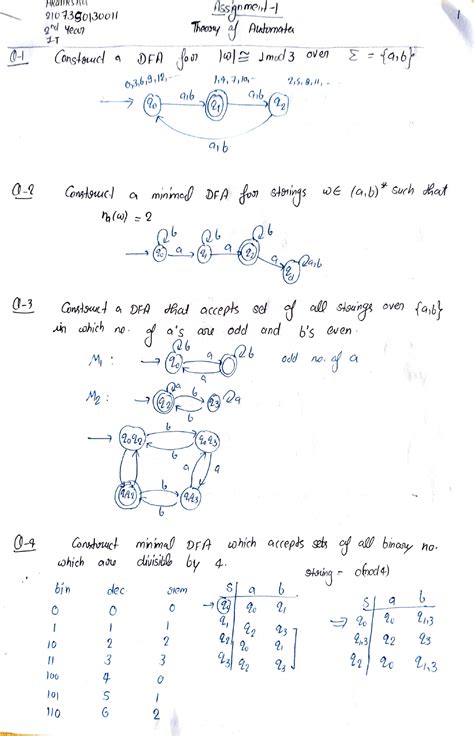 Assignment-1
1
9107350130011
2nd Year
Theory of Automata
I.T
Q-1 Construct a DFA for |ω| ≅ 1mod3 over Σ = {a,b}
0,3,6,9,12,-- 1,4,7,10,-- 2,5,8,11,--
q0 a,b q1 a,b q2
a,b
Q-2 Construct a minimal DFA for strings w∈ (a,b)* such that
(w) = 2
b b b
q0 a q1 a q2 a a,b
Q-3 Construct a DFA that accepts set of all strings over {a,b}
in which no. of a's are odd and b's even.
M1 : q0 b a a b odd no. of a
M2 : q2 a b b q3 a
q0q2 b b q0q3
a a
b b
Q-4 Construct minimal DFA which accepts sets of all binary no.
which are divisible by 4.
string = 0(mod4)
bin dec rem
0 0 0
1 1 1
10 2 2
11 3 3
100 4 0
101 5 1
110 6 2
S a b
q0 q0 q1
q1 q2 q3
q2 q0 q1
q3 q2 q3
S a b
q0 q0 q1,3
q1,3 q2 q3
q2 q0 q1,3